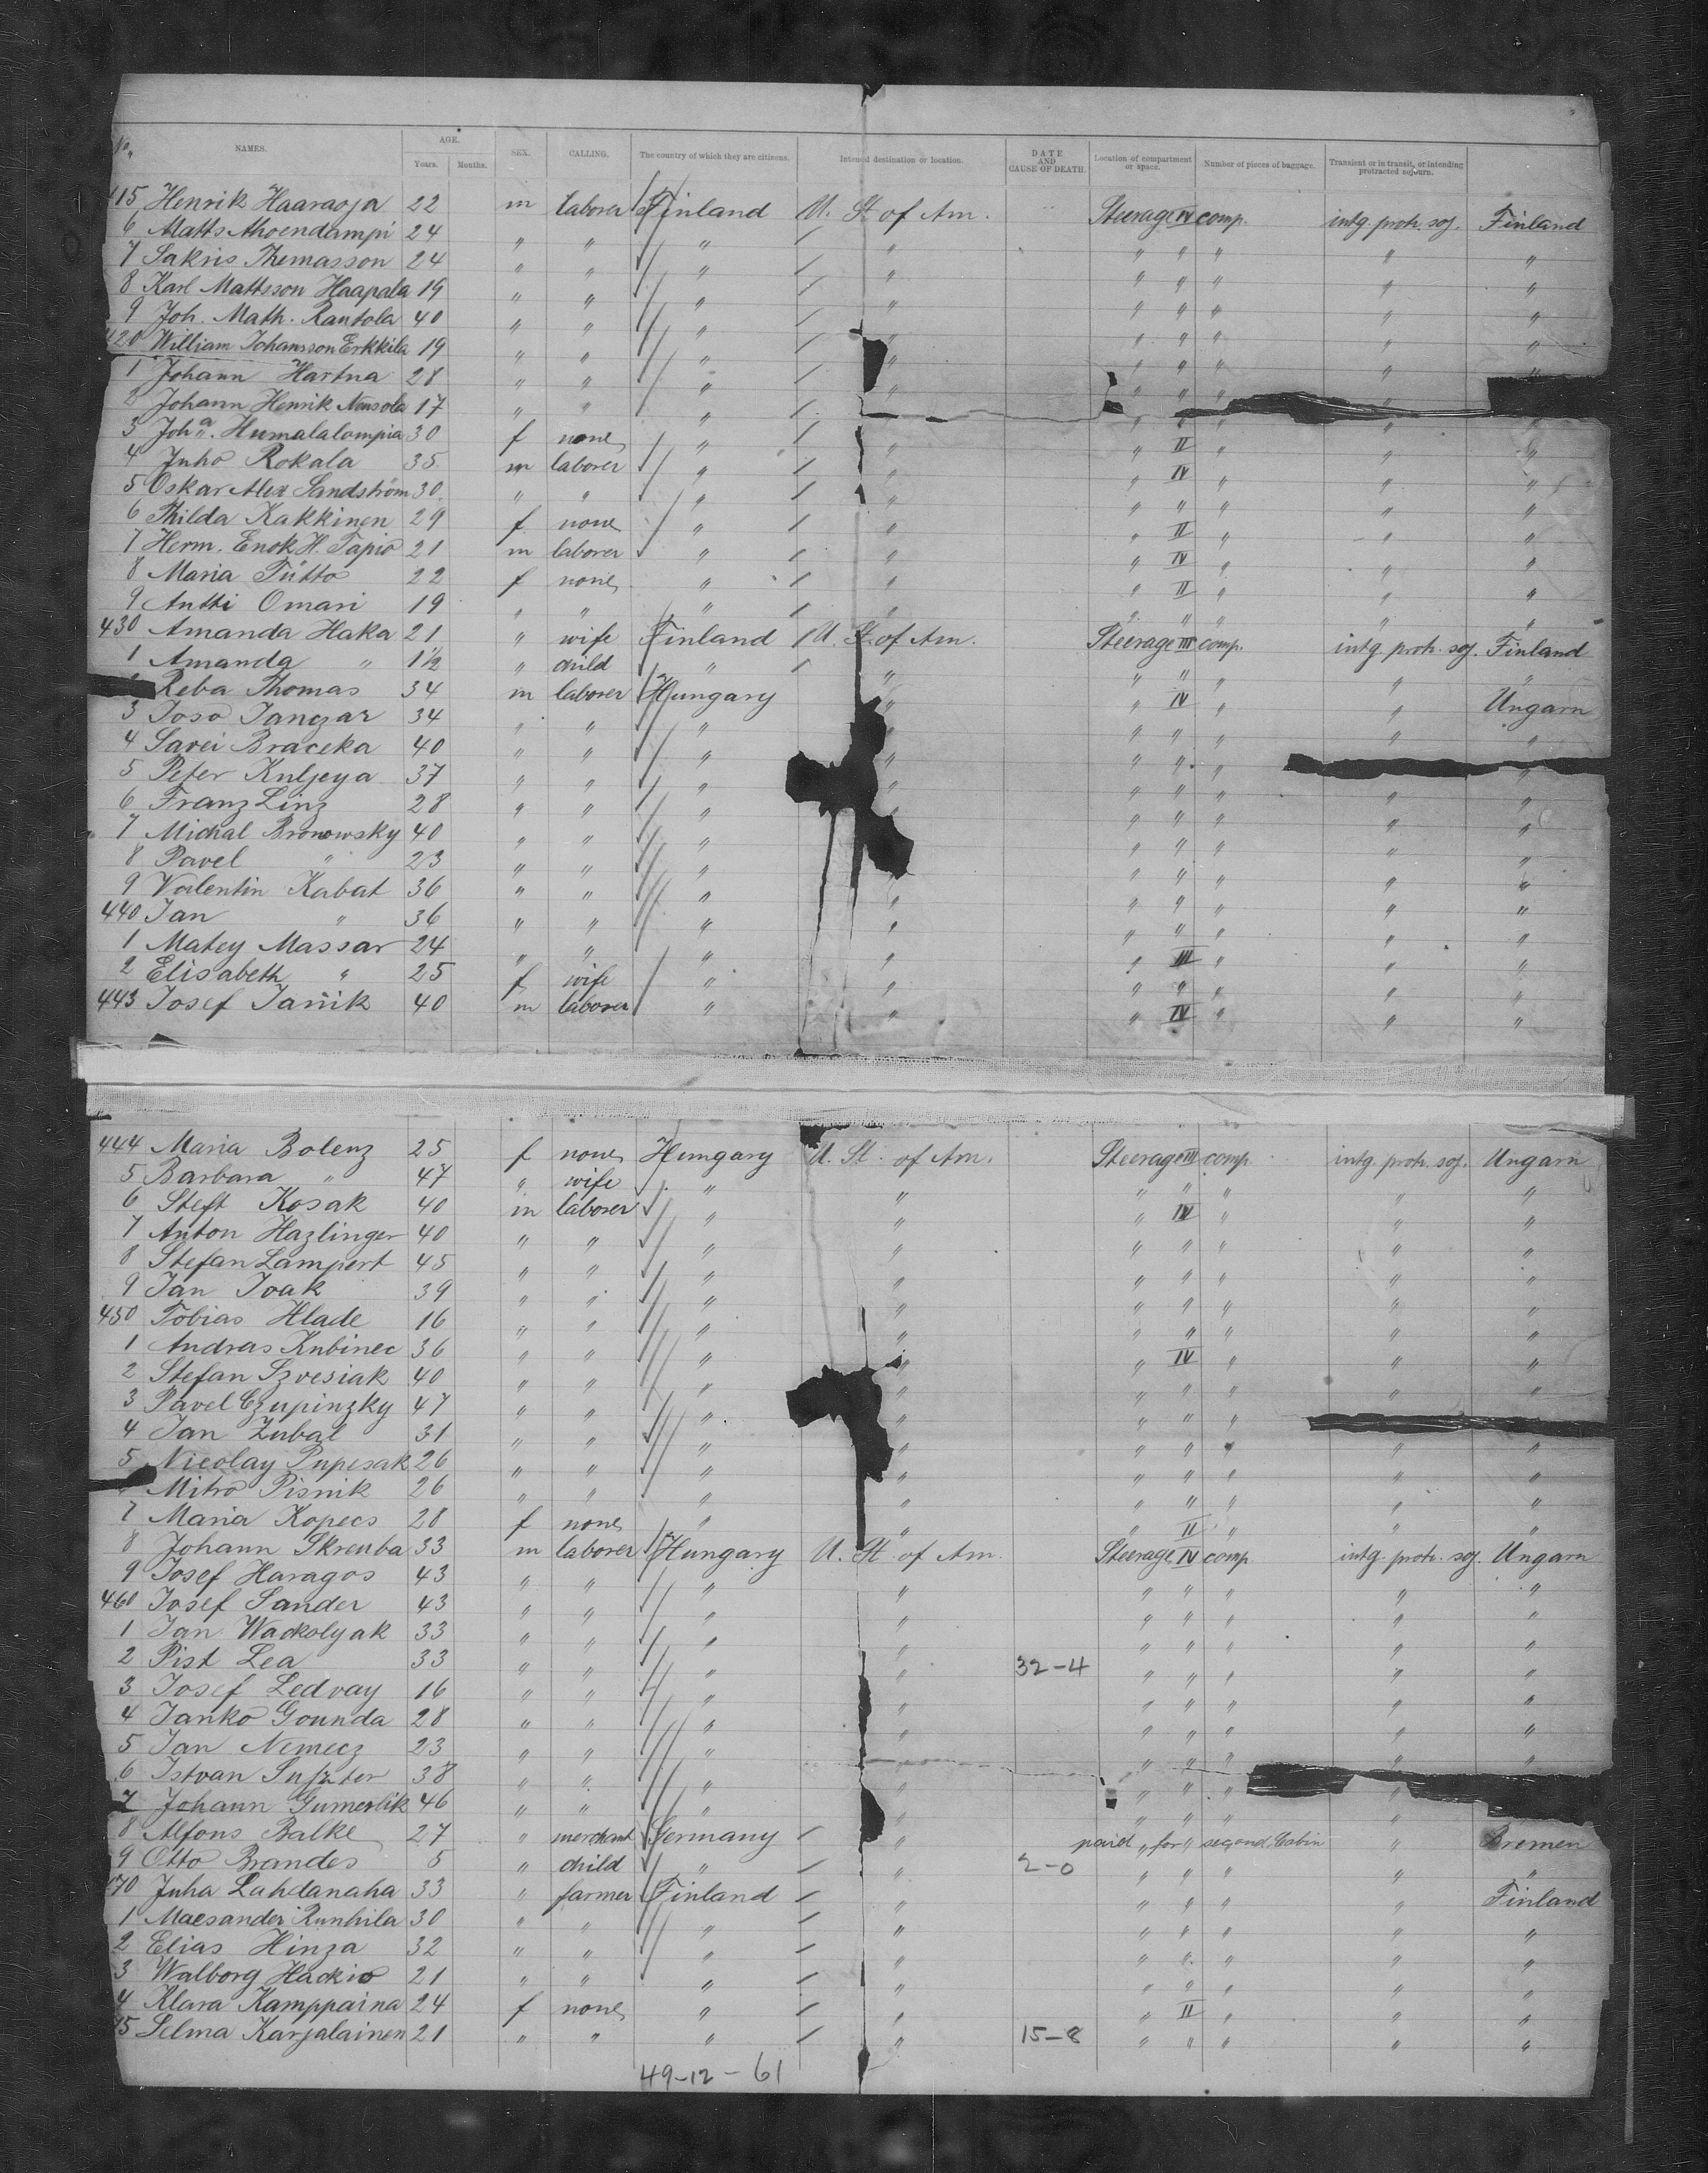 No. NAMES. AGE. Years. Months. SEX. CALLING. The country of which they are citizens. Intended destination or location. DATE AND CAUSE OF DEATH. Location of compartment or space. Number of pieces of baggage. Transient or in transit, or intending protracted sojourn.
415 Henrik Haaraoja 22 m laborer Finland U. St. of Am. Steerage IV comp. intg. protr. soj. Finland
6 Matts 24 " " " " " " " " "
7 Sakris Themasson 24 " " " " " " " " "
8 Karl Mattsson Haapala 19 " " " " " " " " "
9 Joh. Math. Rantola 40 " " " " " " " " "
420 William Johansson Erkkila 19 " " " " " " " " "
1 Johann Hartna 28 " " " " " " " "
2 Johann Henrik 17 " " " " " " "
3 Joha. Humalalompia 30 f none " " " II " " "
4 Juho Rokala 35 m laborer " " " IV " " "
5 Oskar Alex Sandström 30 " " " " " " " " "
6 Thilda Kakkinen 29 f none " " " II " " "
7 Herm. Enok H. Tapio 21 m laborer " " " IV " " "
8 Maria Tütto 22 f none " " " II " " "
9 Antti Omari 19 " " " " " " " " "
430 Amanda Haka 21 " wife Finland U. St. of Am. Steerage III comp. intg. protr. soj. Finland
1 Amanda " 1 1/2 " child " " " " " " "
Reba Thomas 34 m laborer Hungary " " IV " " Ungarn
3 Joso Janczar 34 " " " " " " " " "
4 Sarei Braceka 40 " " " " " " "
5 Peter Kuljeya 37 " " " " " " " "
6 Franz Linz 28 " " " " " " " " "
7 Michal Bronowsky 40 " " " " " " " " "
8 Pavel " 23 " " " " " " " " "
9 Valentin Kabat 36 " " " " " " " " "
440 Jan " 36 " " " " " " " " "
1 Matey Massar 24 " " " " " III " " "
2 Elisabeth " 25 f wife " " " " " " "
443 Josef Janik 40 m laborer " " " IV " " "
444 Maria Bolenz 25 f none Hungary U. St. of Am. Steerage III comp. intg. protr. soj. Ungarn
5 Barbara " 47 " wife " " " " " " "
6 Steft Kosak 40 m laborer " " " IV " " "
7 Anton Hazlinger 40 " " " " " " " " "
8 Stefan Lampert 45 " " " " " " " " "
9 Jan Joak 39 " " " " " " " " "
450 Tobias Hlade 16 " " " " " " " " "
1 Andras Kubinec 36 " " " " " IV " " "
2 Stefan Szvesiak 40 " " " " " " " " "
3 Pavel Czupinzky 47 " " " " " " "
4 Jan Zubal 31 " " " " " " " " "
5 Nicolay Pupesak 26 " " " " " " " " "
Mitro Pisnik 26 " " " " " " " " "
7 Maria Kopecs 28 f none " " " II " " "
8 Johann Skrenba 33 m laborer Hungary U. St. of Am. Steerage IV comp. intg. protr. soj. Ungarn
9 Josef Haragos 43 " " " " " " " " "
460 Josef Sander 43 " " " " " " " " "
1 Jan Wackolyak 33 " " " " " " " " "
2 Pist Lea 33 " " " " 32-4 " " " " "
3 Josef Ledvay 16 " " " " " " " " "
4 Janko Gounda 28 " " " " " " " " "
5 Jan Nemecz 23 " " " " " " " " "
6 Istvan 38 " " " " " " " "
7 Johann Gumerlik 46 " " " " " " " "
8 Alfons Balke 27 " merchant Germany " paid for second Cabin " Bremen
9 Otto Brandes 5 " child " " 2-0 " " " " "
470 Juha Lahdanaha 33 " farmer Finland " " " " " Finland
1 Maesander Runhila 30 " " " " " " " " "
2 Elias Hinza 32 " " " " " " " " "
3 Walborg Hackio 21 " " " " " " " " "
4 Klara Kamppaina 24 f none " " " II " " "
75 Selma Karjalainen 21 " " " " 15-8 " " " " "
49-12-61